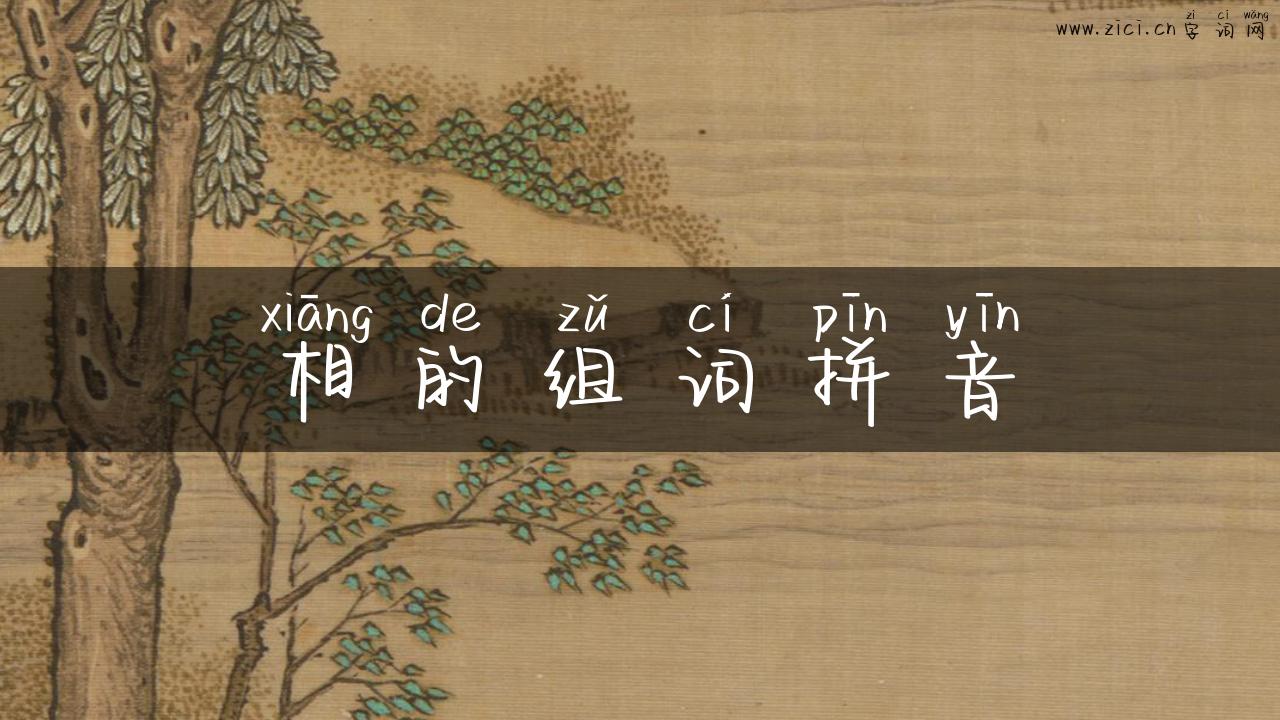 zì cí wǎng
www.zici.cn 字词网
xiāng de zǔ cí pīn yīn
相的组词拼音